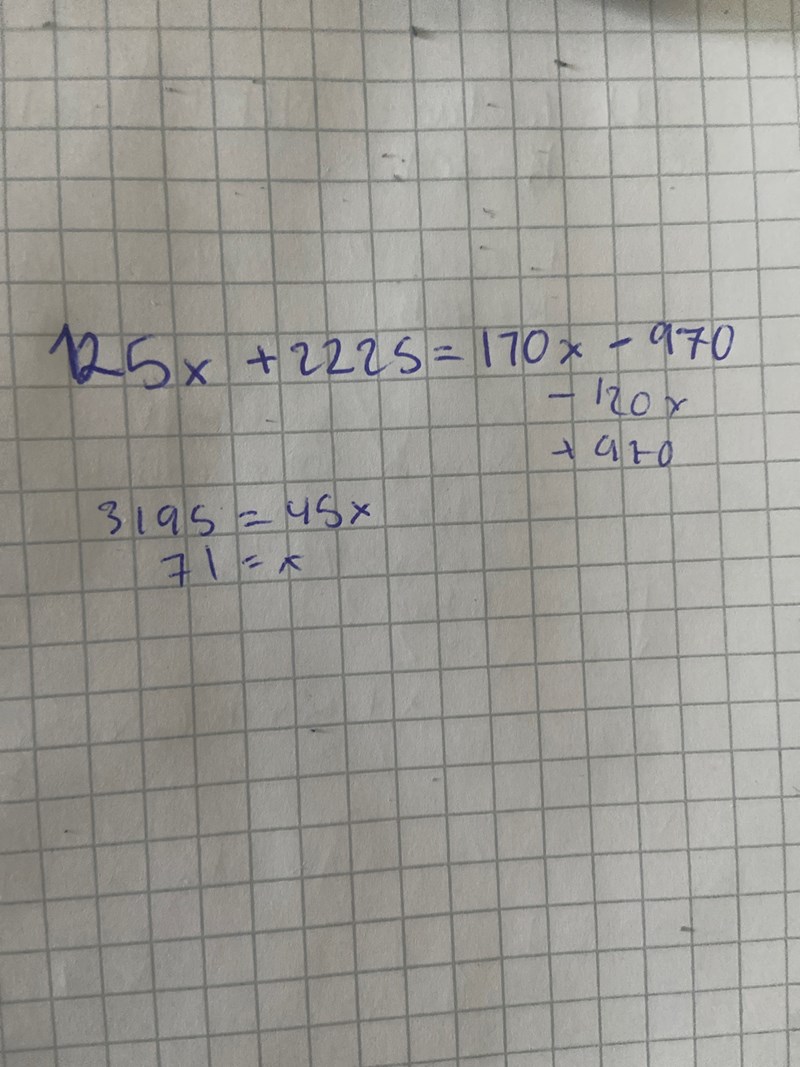 125x + 2225 = 170x - 970
- 120x
+ 970
3195 = 45x
71 = x